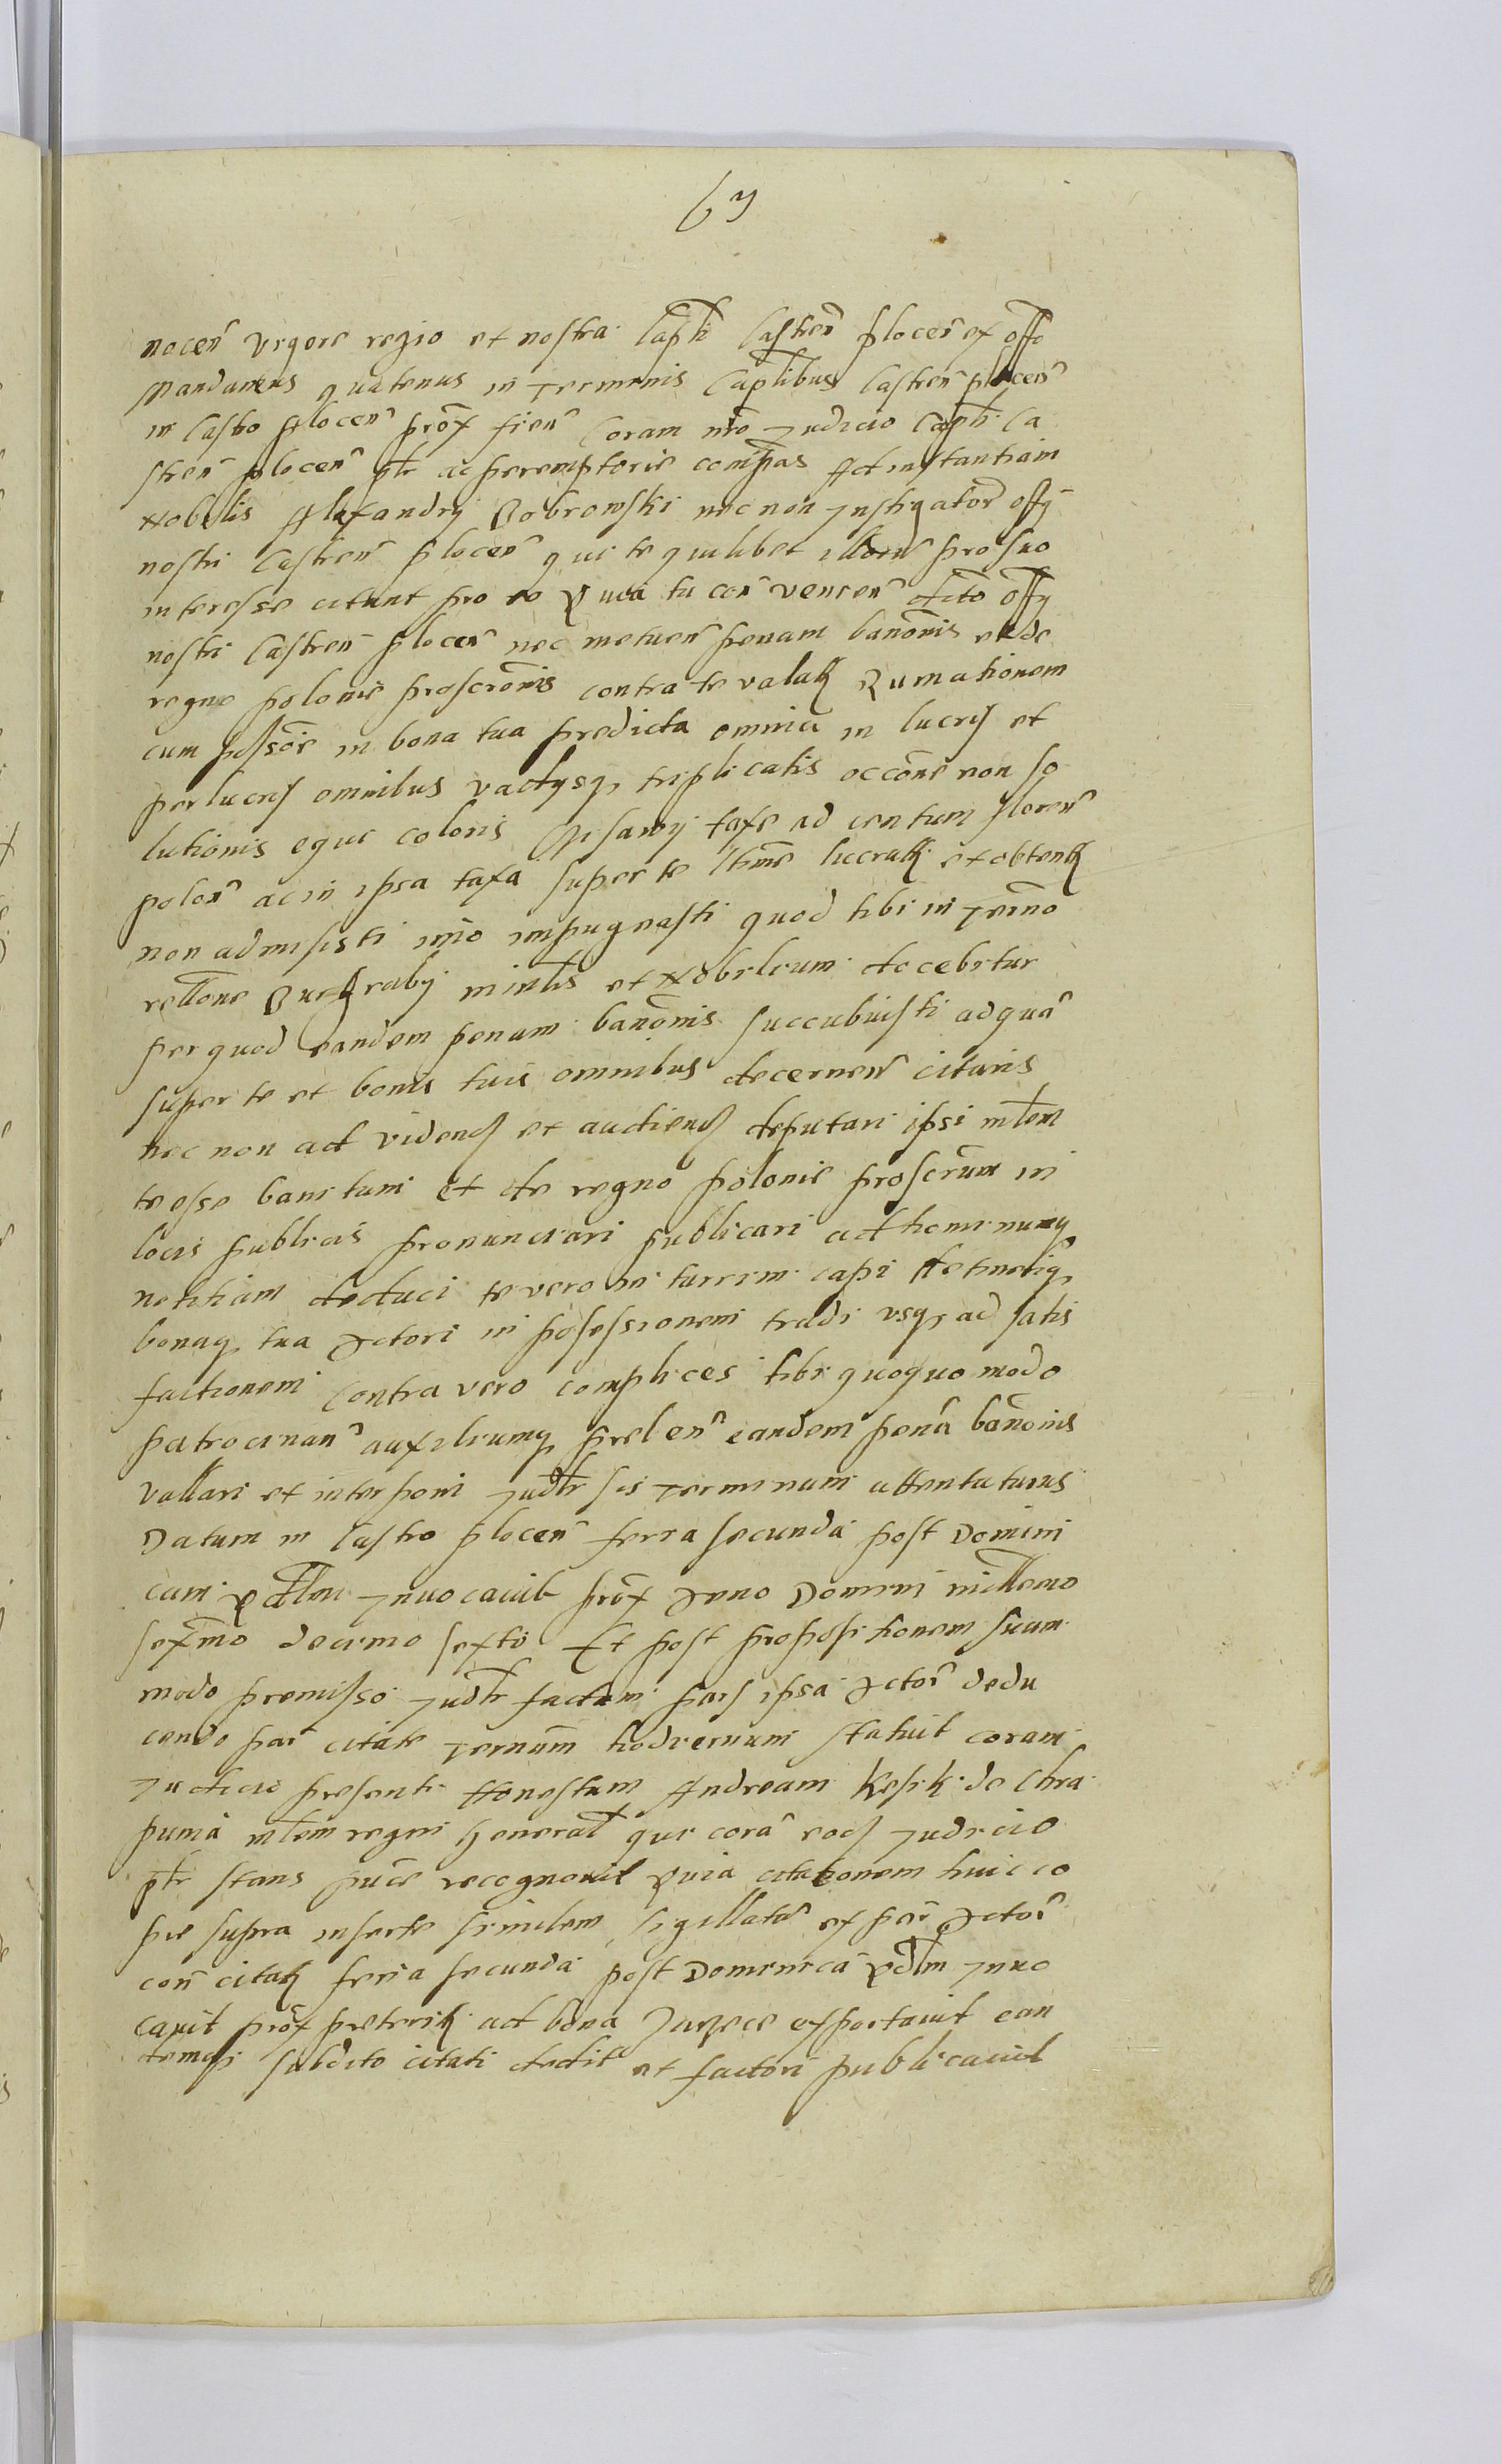 67
nocen̄ vigore regio et nostra Capli Castren̄ plocen̄ ex offo
Mandamus quatenus in Terminis Caplibus Castren̄ plocen̄
in Castro plocen̄ prox fien̄ Coram nro Judicio Capli Ca
stren̄ plocen̄ plr ac peremptorie compas Ad instantiam
Nobilis Alexandrij Bobrowski nec non Instigator offij
nostri Castren̄ plocen̄ qui te quilibet illorum pro suo
interesse citunt pro eo Quia tu con̄ venien̄ dicto offy
nostri Castren̄ plocen̄ nec metuen̄ penam banonis et de
regno polonie proscronis contra te valat Rumationem
cum possore in bona tua predicta omnia in lucris et
perlucris omnibus vadysq triplicatis occone non so
lutionis eque coloris taxe ad centum floren̄
polon̄ ac in ipsa taxa super te lucrat et obtent
non admisisti imo impugnasti quod tibi in Termno
rellone Burgraby minlis et Nobilium docebitur
per quod eandem penam banonis succubuisti ad quā
super te et bonis tuis omnibus decernen̄ citaris
nec non ad videnḋ et audienḋ deputari ipsi mlem
te esse banitum et de regno polonie proscrum in
locis publicis pronunciari publicari ad hominumq
notitiam deduci te vero in turrim capi detineriq
bonaq tua Actori in possessionem tradi vsq ad satis
factionem Contra vero complices tibi quoquo modo
patrocinan̄ auxiliumq preben̄ eandem penā banonis
vallari et interponi Judlr sis Terminum attentaturus
Datum in Castro plocen̄ feria secunda post Domini
cam Qdlem Inuocauit prox Anno Domini millemo
sexmo decimo sexto Et post propositionem suam
modo premisso Judlr factam pars ipsa Actor̄ dedu
cendo par citate Ternum hodiernum statuit coram
Judicio presenti Honestum Andream Kesik de Chra
punia mlem regni General qui corā eod Judicio
plr stans puce recognouit Quia citationem huic co
pie supra inserte similem sigillatā ex par Actor̄
con̄ citat feria secunda post Dominicā Qdlm Inuo
cauit prox preterit ad bona exportauit ean
demq subdito citati dedit et factori publicauit